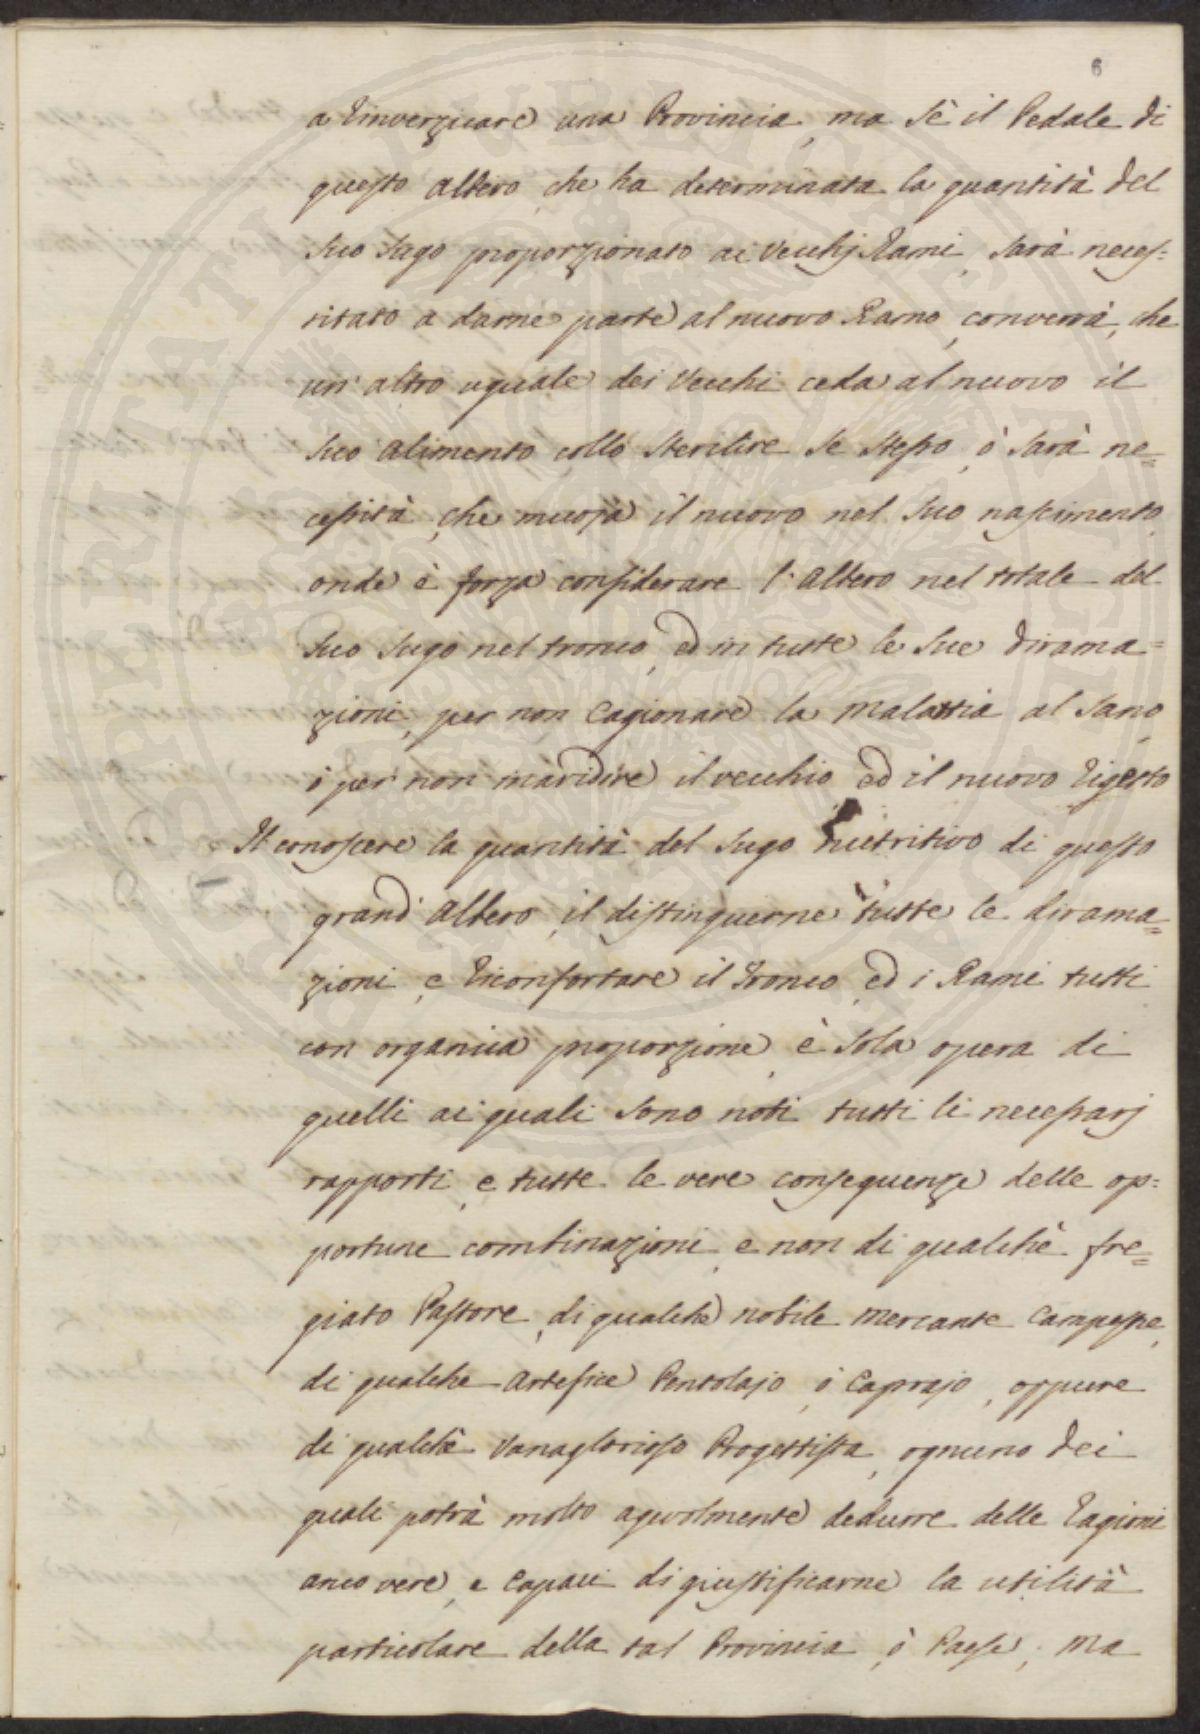 6
a Rinverzicare una Provincia, ma sè il Pedale di
questo albero, che ha determinata la quantità del
suo sugo proporzionato ai Vecchj Rami, sarà neces=
sitato a darne parte al nuovo Ramo, converrà, che
un' altro uguale dei Vecchi ceda al nuovo il
suo alimento collo sterilire se stesso, ò sarà ne=
cessità, che muoja il nuovo nel suo nascimento
onde è forza considerare l'albero nel totale del
suo sugo nel tronco, ed in tutte le sue dirama=
zioni, per non cagionare la malattia al sano,
ò per non inaridire il vecchio ed il nuovo Rigetto
Il conoscere la quantità del sugo nutritivo di questo
grand' albero, il distinguerne tutte le dirama=
zioni, e Riconfortare il Tronco, ed i Rami tutti
con organica proporzione, è sola opera di
quelli ai quali sono noti tutti li necessarj
rapporti, e tutte le vere conseguenze delle op=
portune combinazioni, e non di qualchè fre=
giato Pastore, di qualchè nobile mercante Campestre,
di qualche artefice Pentolajo, ò Caprajo, oppure
di qualchè Vanaglorioso Progettista, ognuno dei
quali potrà molto agevolmente dedurre delle Ragioni
anco vere, e capaci di giustificarne la utilità
particolare della tal Provincia, ò Paese; Ma
PROSPERITATI PUBLICAE